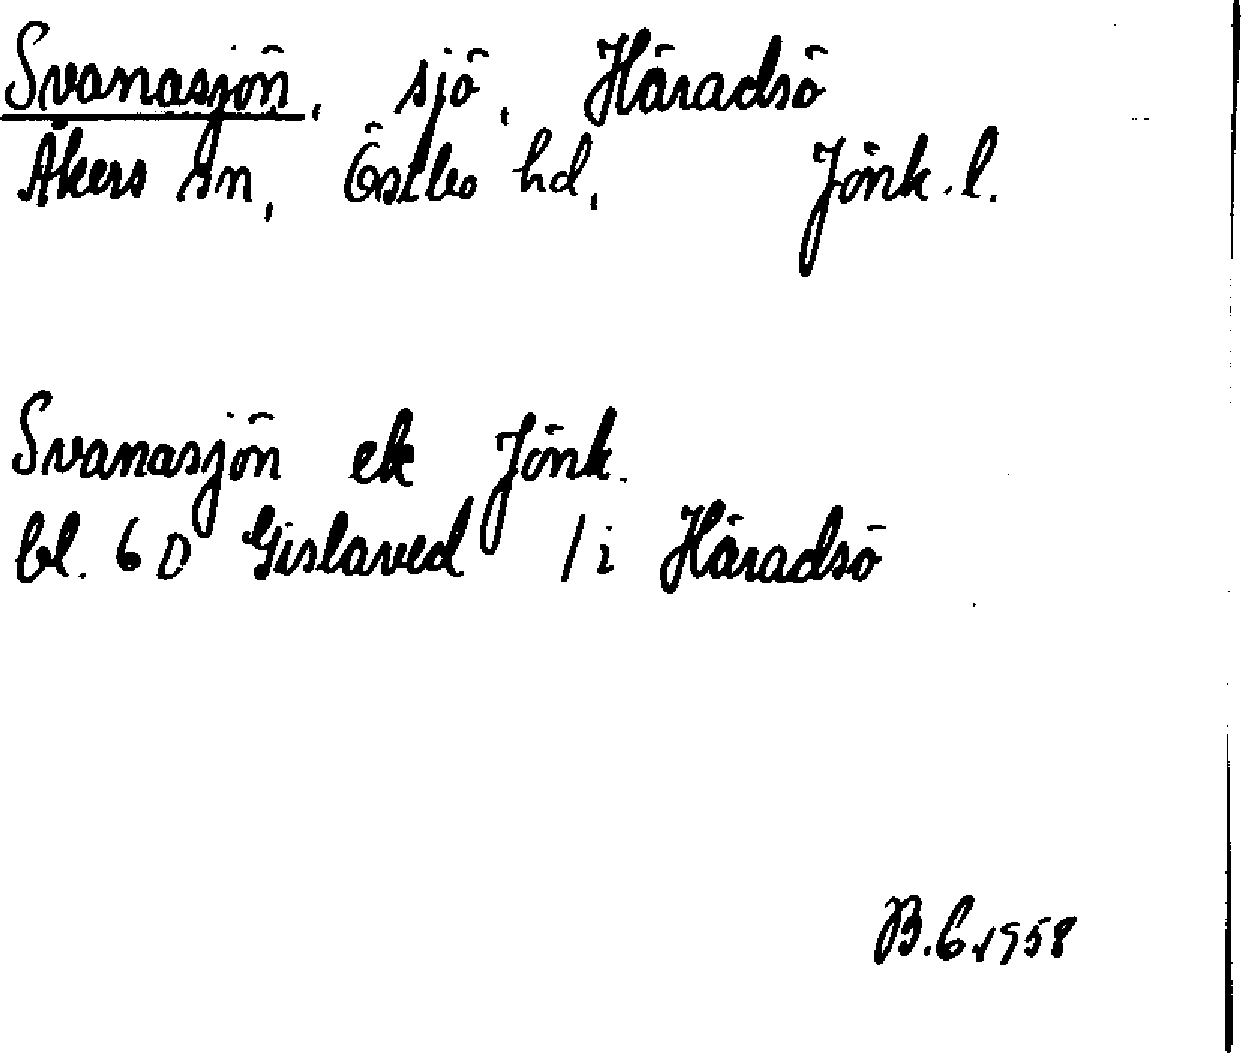 Svanasjön, sjö, Häradsö
Åkers sn, Östbo hd, Jönk.l.
Svanasjön ek Jönk.
bl. 6 D Gislaved / i Häradsö
B.G.1958